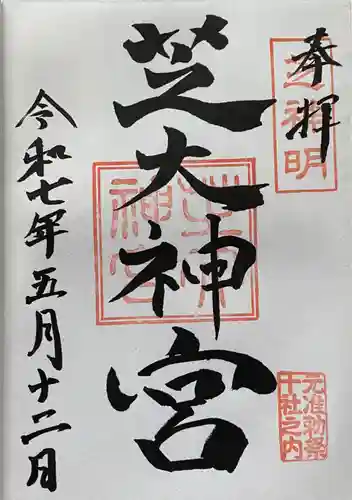 奉拝
芝神明
元准勅祭
十社之内
芝大神宮
令和七年五月十二日